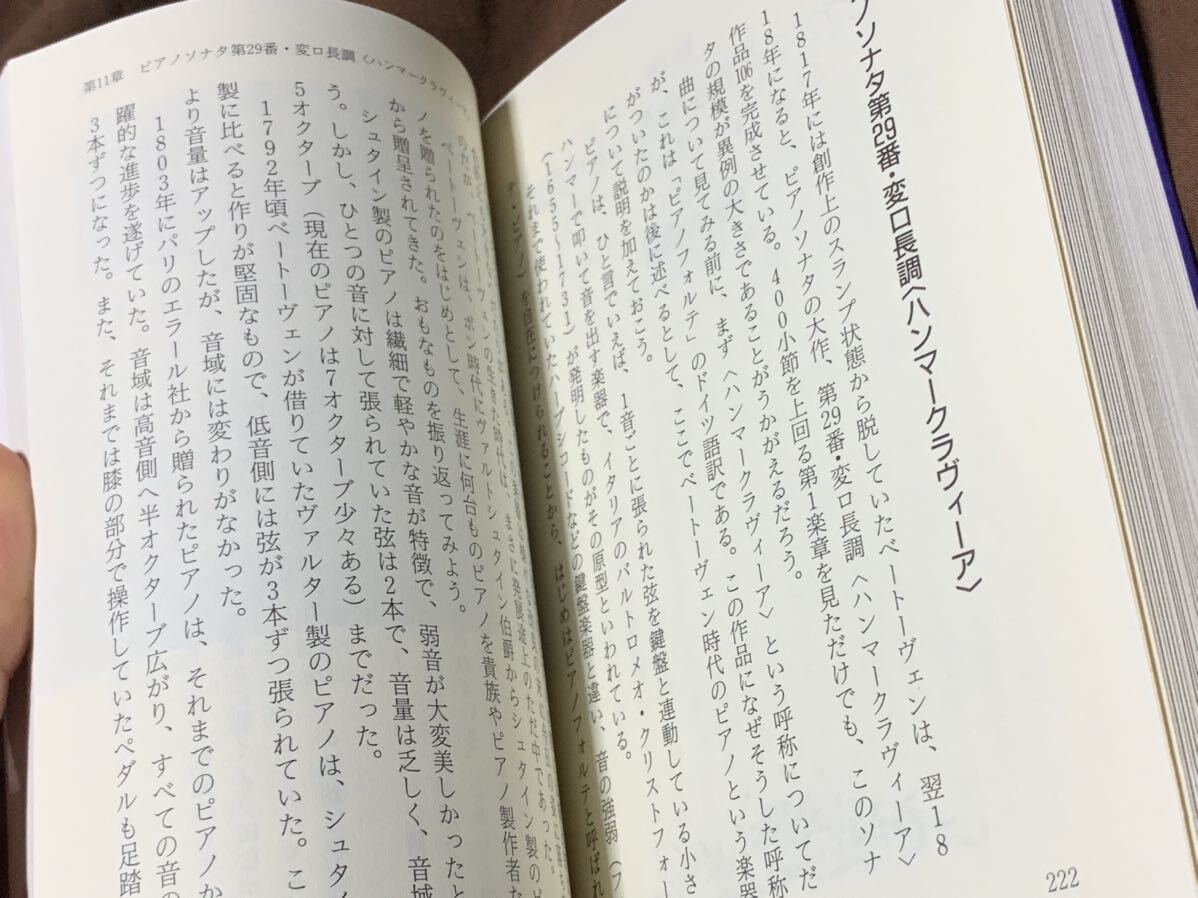 ノソナタ第29番・変ロ長調〈ハンマークラヴィーア〉
1817年には創作上のスランプ状態から脱していたベートーヴェンは、翌18
18年になると、ピアノソナタの大作、第29番・変ロ長調〈ハンマークラヴィーア〉
作品106を完成させている。400小節を上回る第1楽章を見ただけでも、このソナ
タの規模が異例の大きさであることがうかがえるだろう。
曲について見てみる前に、まず〈ハンマークラヴィーア〉という呼称についてだ
が、これは「ピアノフォルテ」のドイツ語訳である。この作品になぜそうした呼称
がついたのかは後に述べるとして、ここでベートーヴェン時代のピアノという楽器
について説明を加えておこう。
ピアノは、ひと言でいえば、1音ごとに張られた弦を鍵盤と連動している小さ
ハンマーで叩いて音を出す楽器で、イタリアのバルトロメオ・クリストフォー
(1655〜1731)が発明したものがその原型といわれている。
それまで使われていたハープシコードなどの鍵盤楽器と違い、音の強弱(フ
・ピアノ)を自在につけられることから、はじめはピアノフォルテと呼ばれ
222
第11章 ピアノソナタ第29番・変ロ長調〈ハンマークラヴィーア
ベートーヴェンは、ボン時代にヴァルトシュタイン伯爵からシュタイン製のピ
ノを贈られたのをはじめとして、生涯に何台ものピアノを貴族やピアノ製作者た
から贈呈されてきた。おもなものを振り返ってみよう。
シュタイン製のピアノは繊細で軽やかな音が特徴で、弱音が大変美しかったと
う。しかし、ひとつの音に対して張られていた弦は2本で、音量は乏しく、音域
5オクターブ(現在のピアノは7オクターブ少々ある)までだった。
1792年頃ベートーヴェンが借りていたヴァルター製のピアノは、シュタイ
製に比べると作りが堅固なもので、低音側には弦が3本ずつ張られていた。こ
より音量はアップしたが、音域には変わりがなかった。
1803年にパリのエラール社から贈られたピアノは、それまでのピアノか
躍的な進歩を遂げていた。音域は高音側へ半オクターブ広がり、すべての音の
3本ずつになった。また、それまでは膝の部分で操作していたペダルも足踏